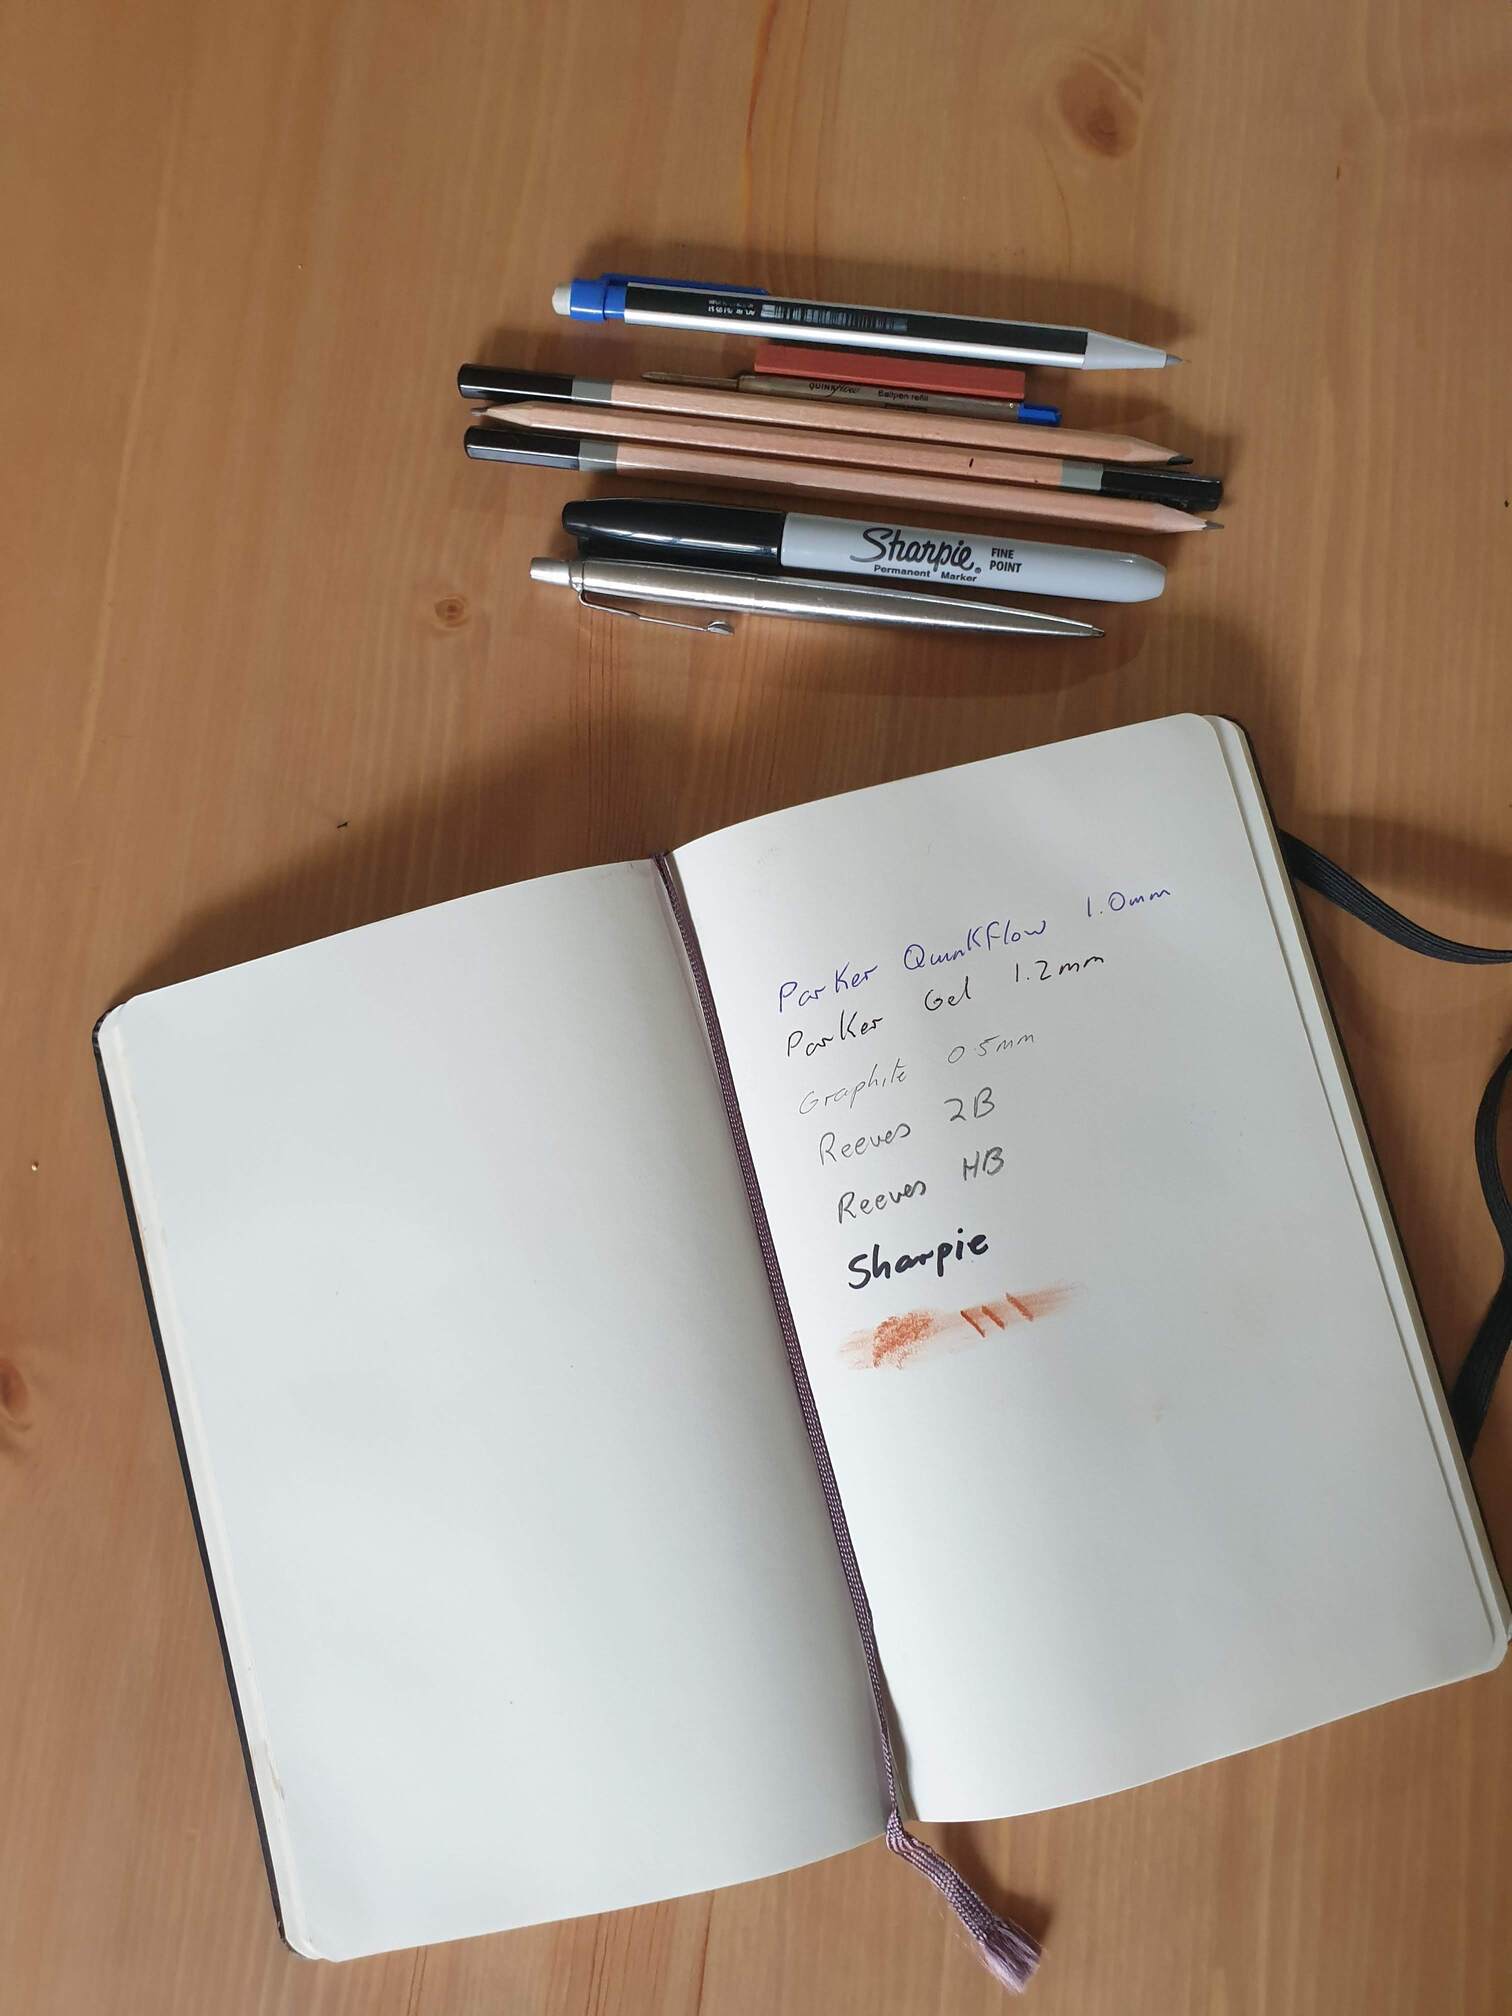 QUINKflow Ballpen refill
Sharpie. FINE
POINT
Permanent Marker
Parker Quinkflow 1.0mm
Parker Gel 1.2mm
Graphite 0.5mm
Reeves 2B
Reeves HB
Sharpie